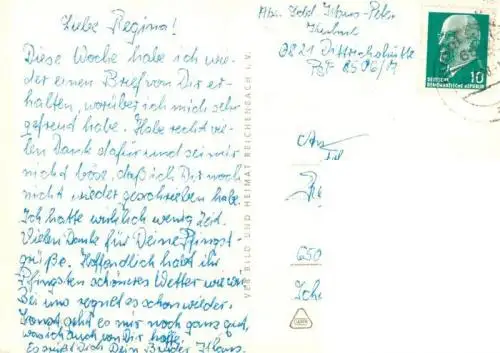 Liebe Regina!
Diese Woche habe ich wie-
der einen Brief von Dir er-
halten, worüber ich mich sehr
gefreut habe. Habe recht vie-
len Dank dafür und sei mir
nicht böse, daß ich Dir noch
nicht wieder geschrieben habe.
Ich hatte wirklich wenig Zeit.
Vielen Dank für Deine Pfingst-
grüße. Hoffentlich habt ihr
Pfingsten schöneres Wetter wie wir.
Bei uns regnet es schon wieder.
Sonst geht es mir noch ganz gut,
was ich auch von Dir hoffe.
Es grüßt Dich Dein Bruder Klaus.
VEB BILD UND HEIMAT REICHENBACH I. V.
Abs.: Sold. Klaus-Peter
6821 Dittrichshütte
PSF 8506/M
DEUTSCHE
DEMOKRATISCHE REPUBLIK
10
An
650